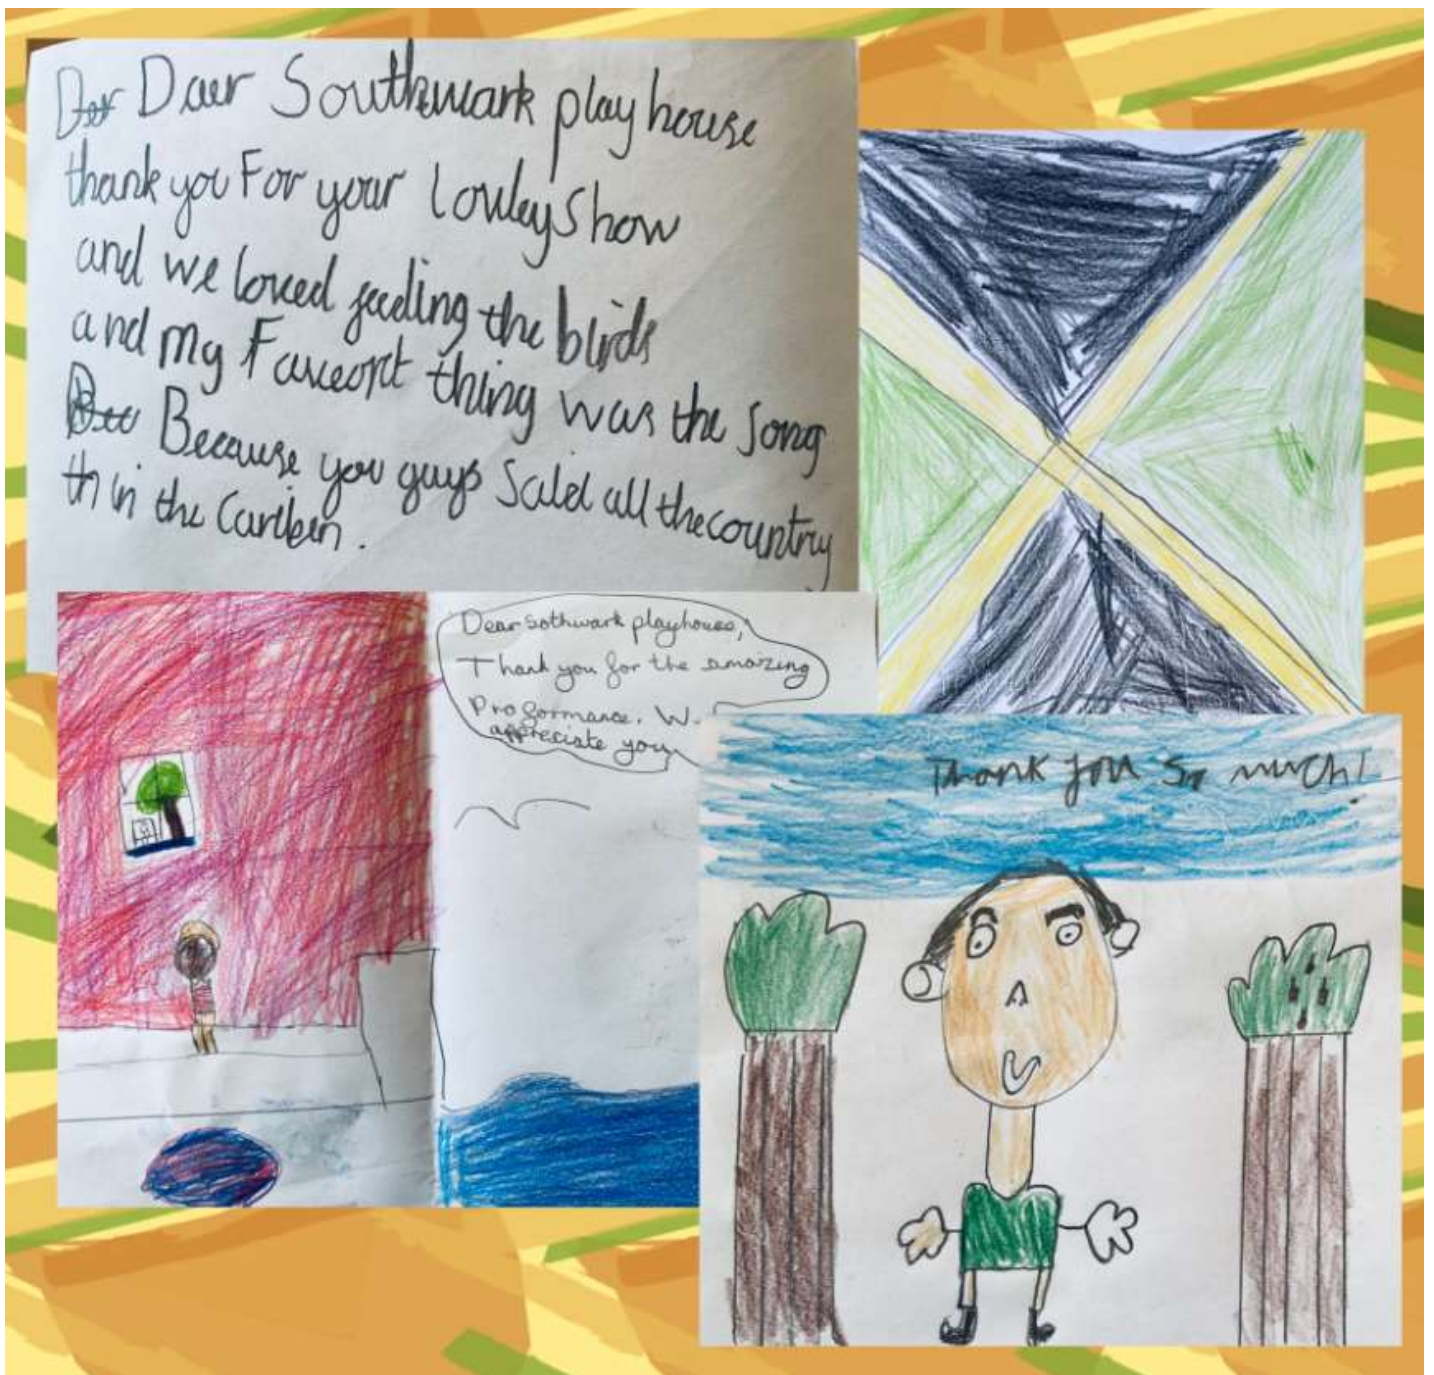 Daer Southwark playhouse
thank you For your Lovley Show
and we loved feeding the birds
and my Faveorit thing was the song
Because you guys Saied all the country
in the Cariben.
Dear Sothwark playhouse,
Thank you for the amaizing
Proformance. W
appreciate you
Thank you so much!